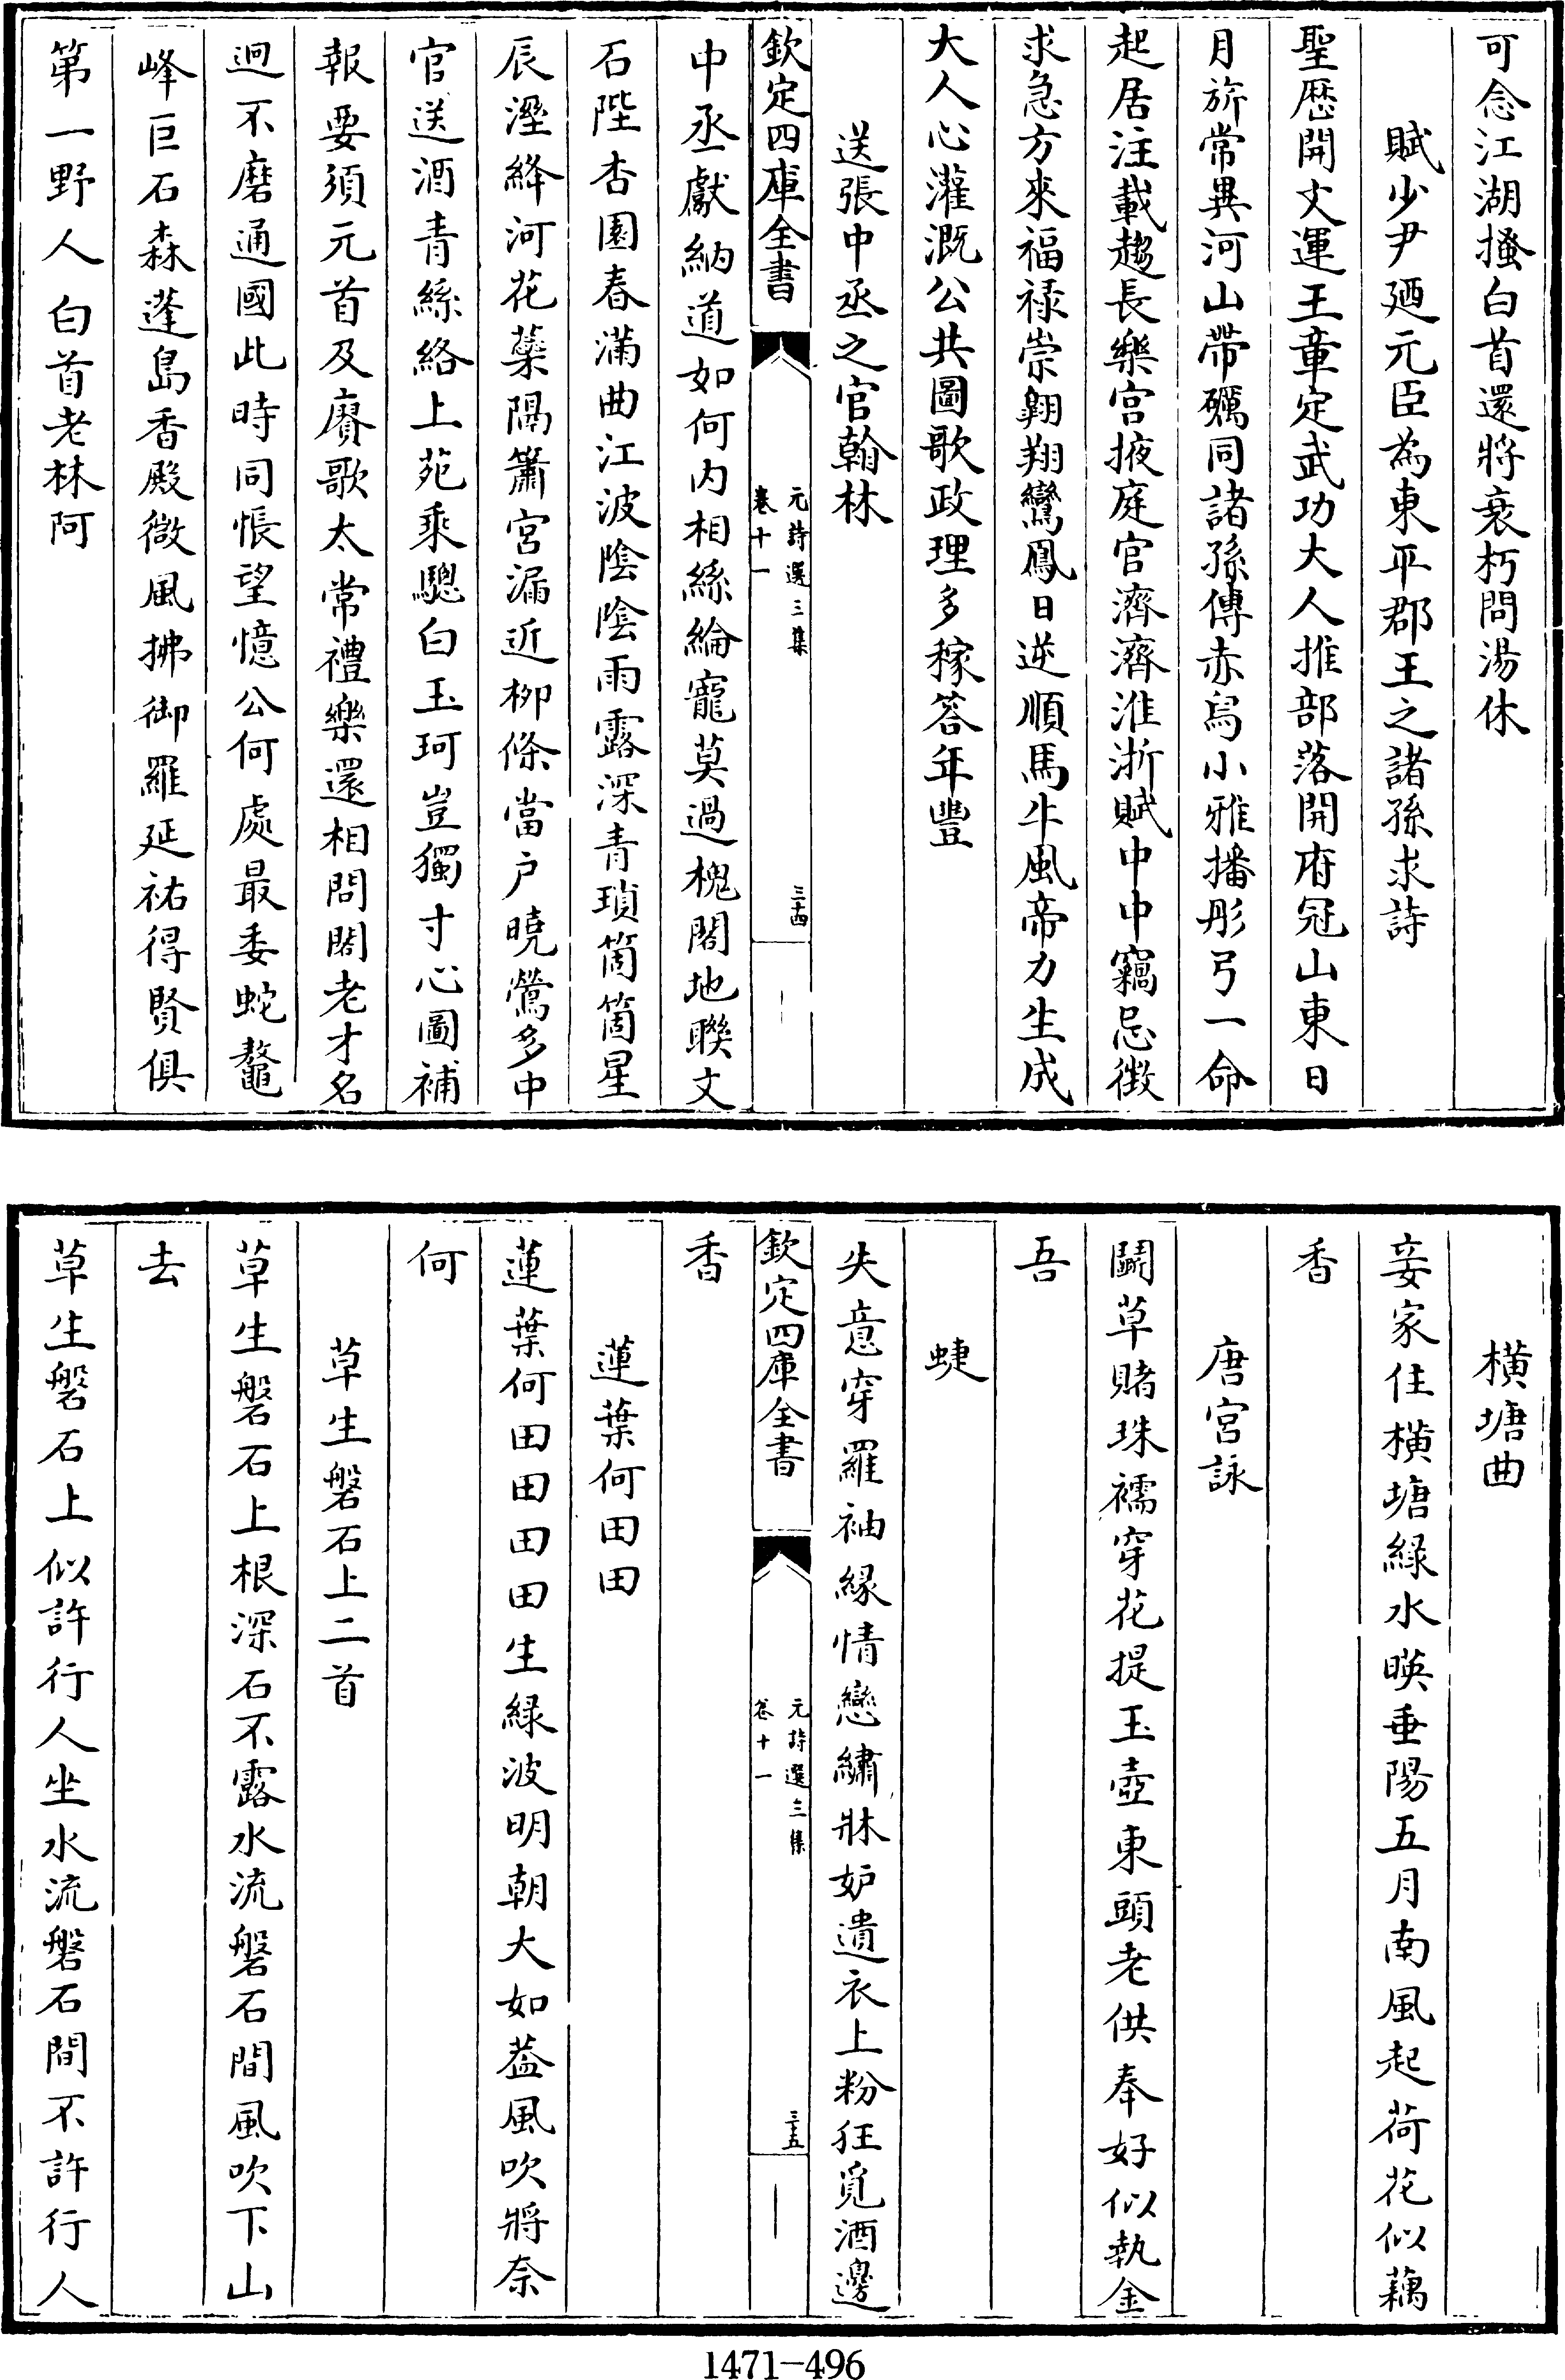 可念江湖搔白首還將衰朽問湯休
賦少尹廼元臣為東平郡王之諸孫求詩
聖歷開文運王章定武功大人推部落開府冠山東日
月旂常異河山帶礪同諸孫傳赤舄小雅播彤弓一命
起居注載趨長樂宮掖庭官濟濟淮浙賦中中竊忌徴
求急方來福祿崇翱翔鸞鳳日逆順馬牛風帝力生成
大人心灌溉公共圖歌政理多稼答年豐
送張中丞之官翰林
欽定四庫全書
元詩選三集
卷十一
三十四
中丞獻納道如何内相絲綸寵莫過槐閣地聯文
石陛杏園春滿曲江波陰陰雨露深青瑣箇箇星
辰溼絳河花藥隔簫宮漏近栁條當户曉鶯多中
官送酒青絲絡上苑乘驄白玉珂豈獨寸心圖補
報要須元首及賡歌太常禮樂還相問閣老才名
迥不磨通國此時同悵望憶公何處最委蛇鼇
峰巨石森蓬島香殿微風拂御羅延祐得賢俱
第一野人白首老林阿
橫塘曲
妾家住橫塘緑水暎垂陽五月南風起荷花似藕
香
唐宮詠
鬭草賭珠襦穿花提玉壺東頭老供奉好似執金
吾
蜨
失意穿羅袖緣情戀繡牀妒遺衣上粉狂覓酒邊
欽定四庫全書
元詩選三集
卷十一
三十五
香
蓮葉何田田
蓮葉何田田田田生緑波明朝大如蓋風吹將奈
何
草生磐石上二首
草生磐石上根深石不露水流磐石間風吹下山
去
草生磐石上似許行人坐水流磐石間不許行人
1471-496